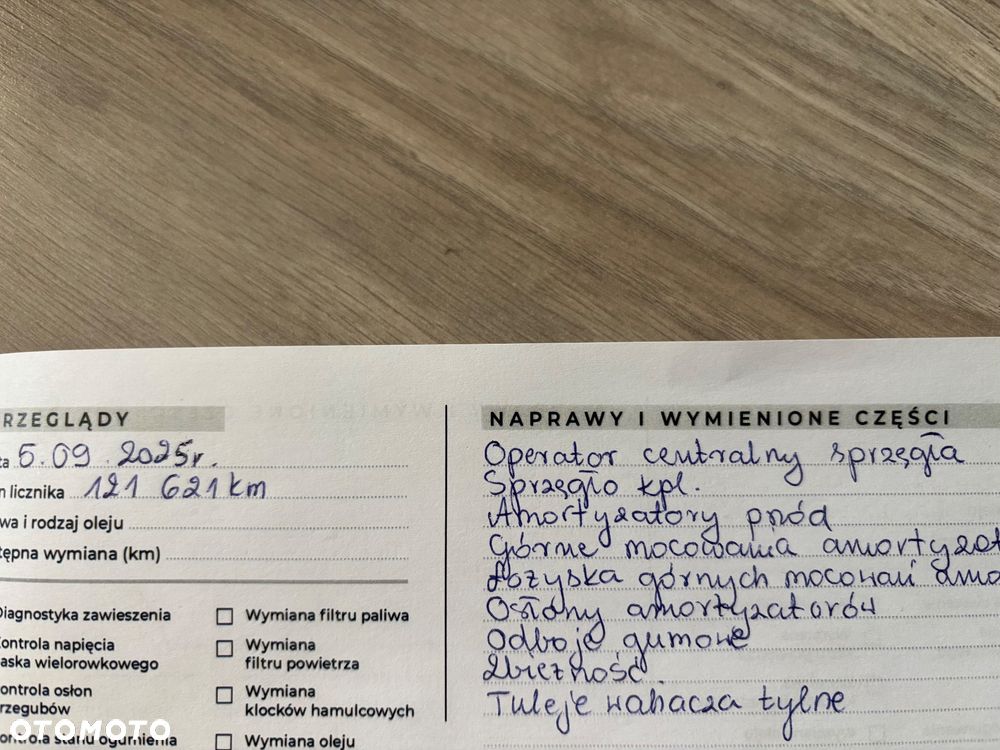 RZEGLĄDY
ta 5.09.2025r.
n licznika 121 621 km
wa i rodzaj oleju
tępna wymiana (km)
Diagnostyka zawieszenia
ontrola napięcia
aska wielorowkowego
ontrola osłon
rzegubów
ontrola stanu ogumienia
Wymiana filtru paliwa
Wymiana
filtru powietrza
Wymiana
klocków hamulcowych
Wymiana oleju
NAPRAWY I WYMIENIONE CZĘŚCI
Operator centralny sprzęgła
Sprzęgło kpl.
Amortyzatory przód
Górne mocowania amortyzat
Łożyska górnych mocowań amo
Osłony amortyzatorów
Odboje gumowe
Zbieżność.
Tuleje wahacza tylne
OTOMOTO